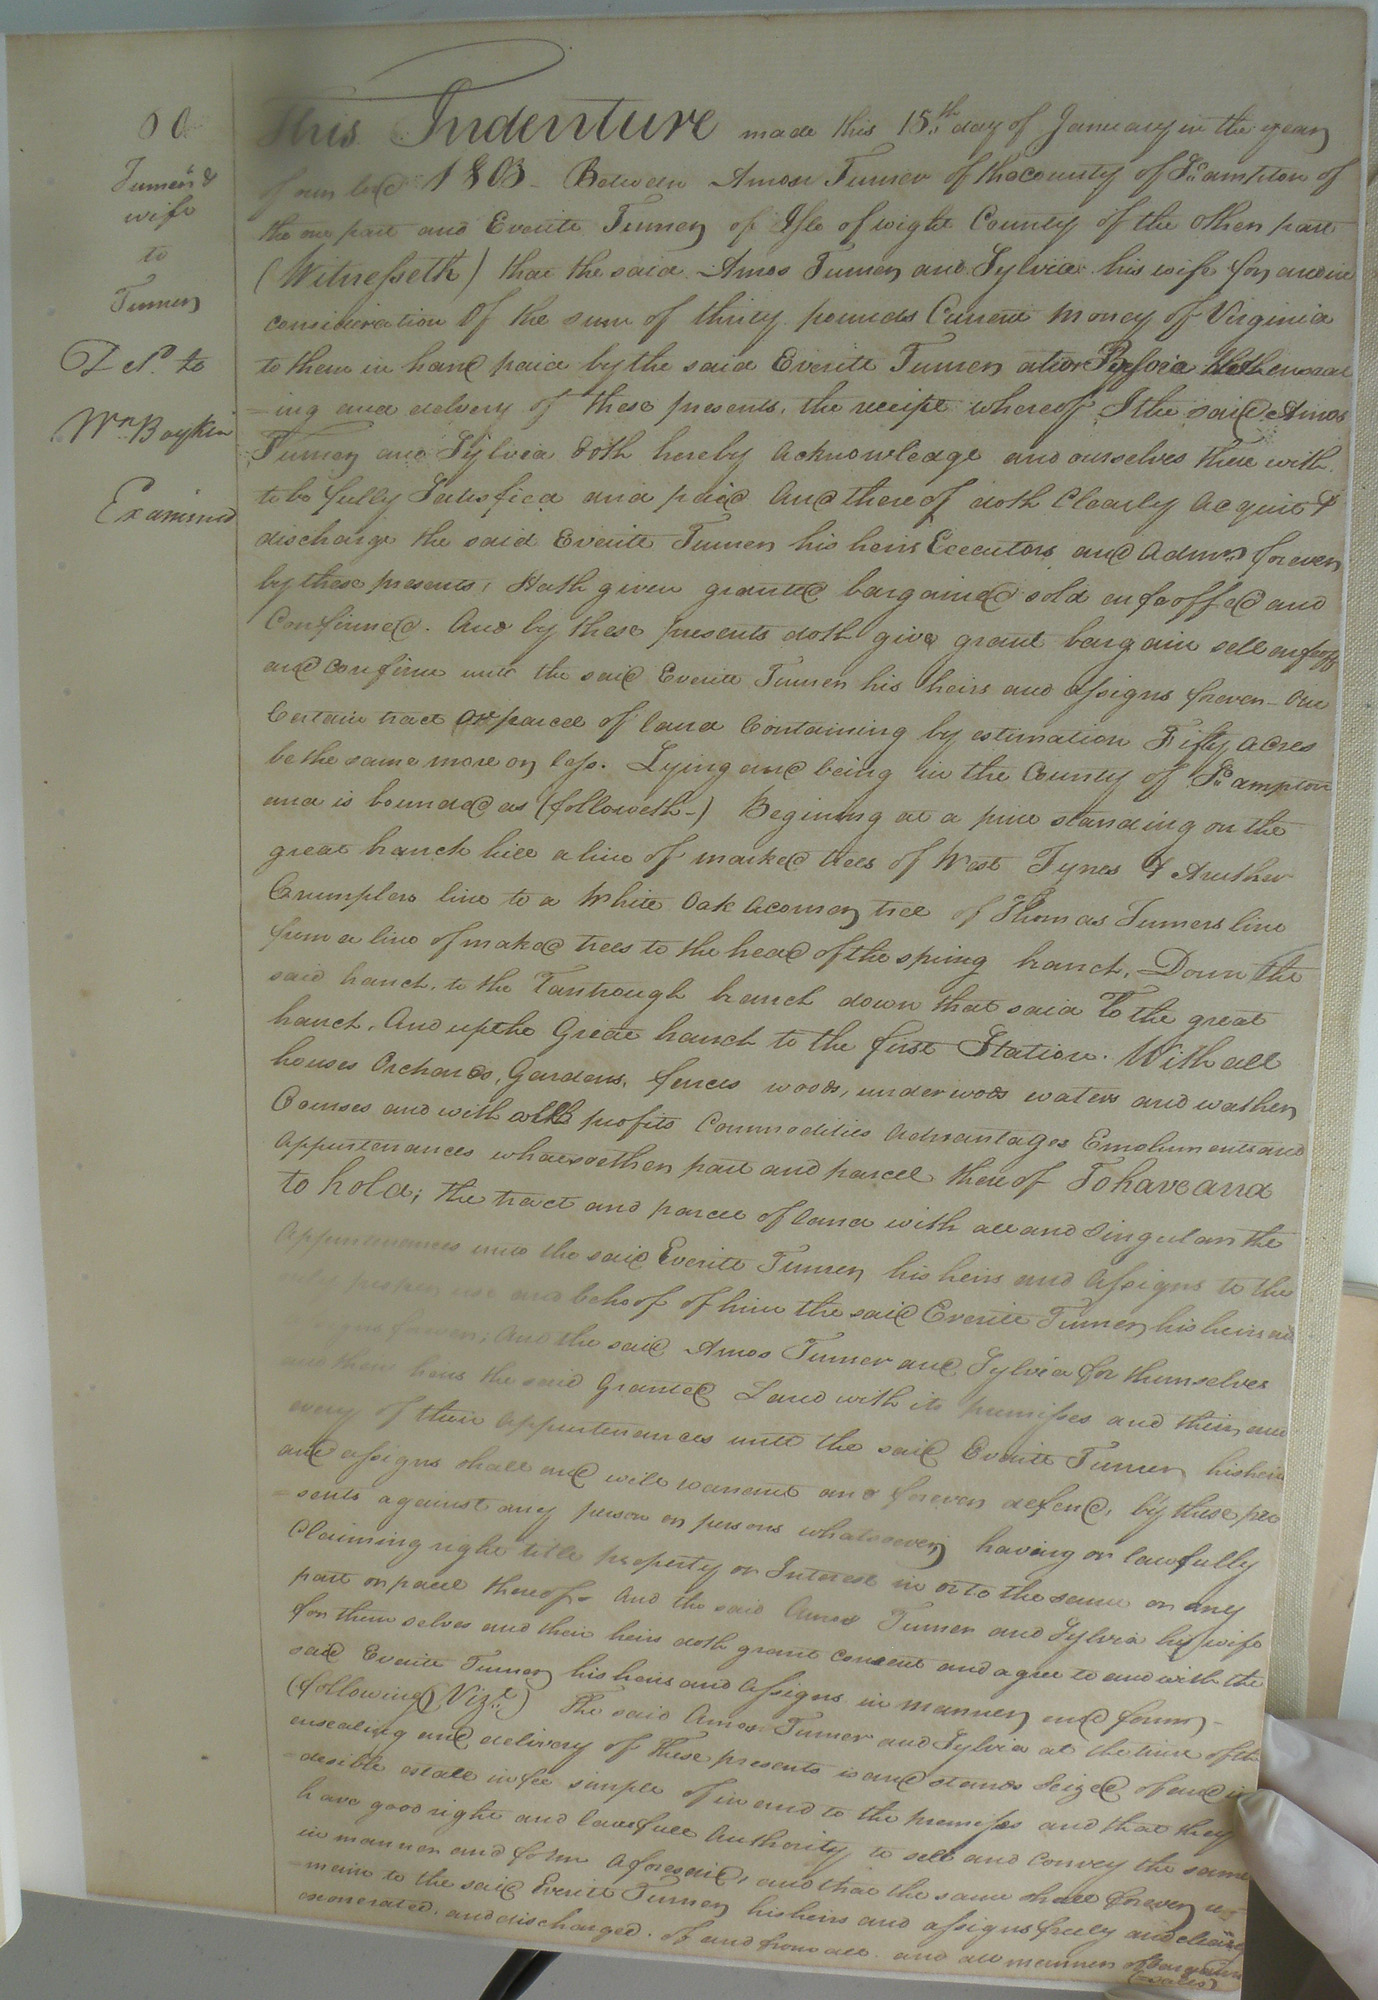 60
Turner &
wife
to
Turner
Dd. to
Wm Boykin
Examined
This Indenture made this 15th day of January in the year
of our lord 1803 - Between Amos Turner of the County of So.ampton of
the one part and Everite Turner of Isle of wight County of the other part
(Witnesseth) that the said Amos Turner and Sylvia his wife for and in
consideration Of the sum of thirty pounds Current money of Virginia
to them in hand paid by the said Everite Turner at or before the enseal
-ing and delivery of these presents, the receipt whereof I the said Amos
Turner and Sylvia doth hereby acknowledge and ourselves there with
to be fully Satisfied and paid And thereof doth Clearly acquit &
discharge the said Everite Turner his heirs Executors and Admrs forever
by these presents, Hath given granted bargained sold enfeoffed and
Confirmed. And by these presents doth give grant bargain sell enfeoff
and confirm unto the said Everite Turner his heirs and assigns forever - One
Certain tract Or parcel of land Containing by estimation Fifty acres
be the same more or less. Lying and being in the County of So.ampton
and is bounded as (followeth-) Begining at a pine standing on the
great branch hill a line of marked trees of West Tynes & Arther
Crumplers line to a White Oak a corner tree of Thomas Turners line
from a line of maked trees to the head of the spring branch, Down the
said branch, to the Tantrough branch down that said To the great
branch, And up the Great branch to the first Station. With all
houses Orchards, Gardens, fences woods, underwoods waters and wather
Courses and with all profits Commodities advantages Emoluments and
appurtenances whatsoether part and parcel thereof To have and
to hold; the tract and parcel of land with all and Singular the
Appurtenances unto the said Everite Turner his heirs and Assigns to the
only proper use and behoof of him the said Everite Turner his heirs and
assigns forever; And the said Amos Turner and Sylvia for themselves
and their heirs the said Granted Land with its premisses and their and
every of their appurtenances unto the said Everite Turner his heirs
and assigns shall and will warrant and forever defend, by these pre
-sents against any person or persons whatsoever having or lawfully
Claiming right title property or Interest in or to the same or any
part or parcel thereof - And the said Amos Turner and Sylvia his wife
for them selves and their heirs doth grant consent and agree to and with the
said Everite Turner his heirs and Assigns in manner and form -
(following Vizt.) The said Amos Turner and Sylvia at the time of the
ensealing and delivery of These presents is and stands Seized of and in
-desible estate in fee simple of in and to the premises and that they
have good right and lawfull Authority to sell and Convey the same
in manner and form aforesaid, and that the same shall forever re-
-main to the said Everite Turner his heirs and assigns freely and clearly
exonerated, and discharged. of and from all and all manner of bargains
(sales)